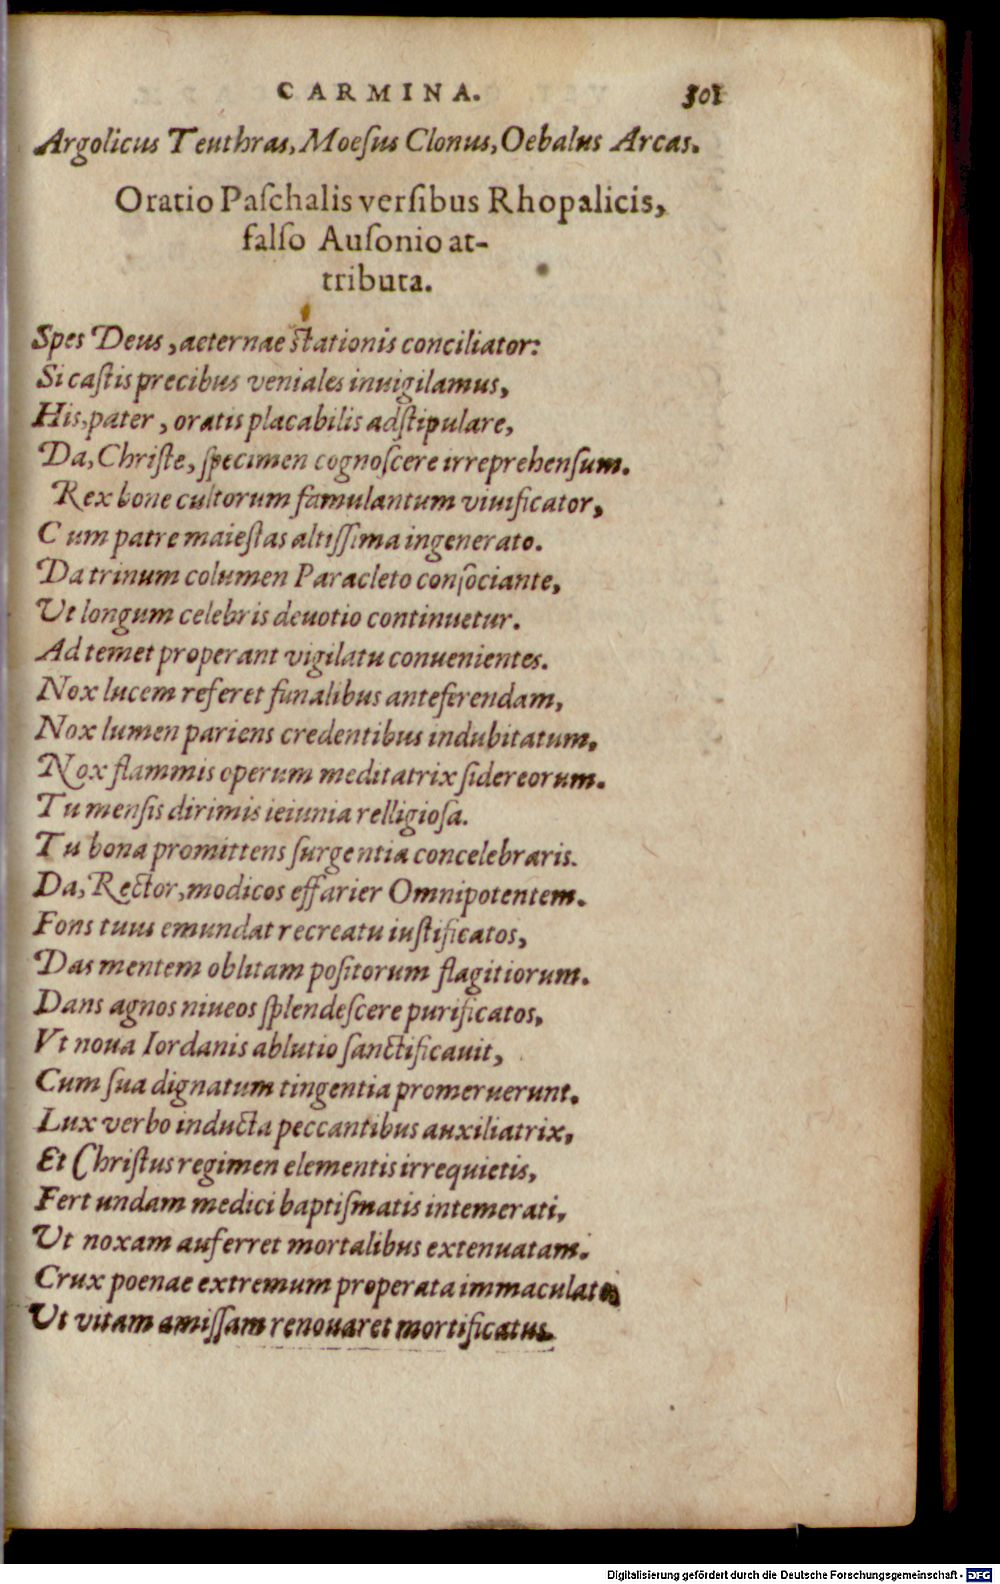 CARMINA. 301
Argolicus Teuthras, Moeſus Clonus, Oebalus Arcas.
Oratio Paſchalis verſibus Rhopalicis,
falſo Auſonio at-
tributa.
Spes Deus, aeternae ſtationis conciliator:
Si caſtis precibus veniales inuigilamus,
His, pater, oratis placabilis adſtipulare,
Da, Chriſte, ſpecimen cognoſcere irreprehenſum.
Rex bone cultorum famulantum viuificator,
Cum patre maieſtas altiſſima ingenerato.
Da trinum columen Paracleto conſociante,
Ut longum celebris deuotio continuetur.
Ad temet properant vigilatu conuenientes.
Nox lucem referet funalibus anteferendam,
Nox lumen pariens credentibus indubitatum,
Nox flammis operum meditatrix ſidereorum.
Tu menſis dirimis ieiunia relligioſa.
Tu bona promittens ſurgentia concelebraris.
Da, Rector, modicos effarier Omnipotentem.
Fons tuus emundat recreatu iuſtificatos,
Das mentem oblitam poſitorum flagitiorum.
Dans agnos niueos ſplendeſcere purificatos,
Vt noua Iordanis ablutio ſanctificauit,
Cum ſua dignatum tingentia promeruerunt.
Lux verbo inducta peccantibus auxiliatrix,
Et Chriſtus regimen elementis irrequietis,
Fert undam medici baptiſmatis intemerati,
Ut noxam auferret mortalibus extenuatam.
Crux poenae extremum properata immaculato
Ut vitam amiſſam renouaret mortificatus.
Digitalisierung gefördert durch die Deutsche Forschungsgemeinschaft - DFG